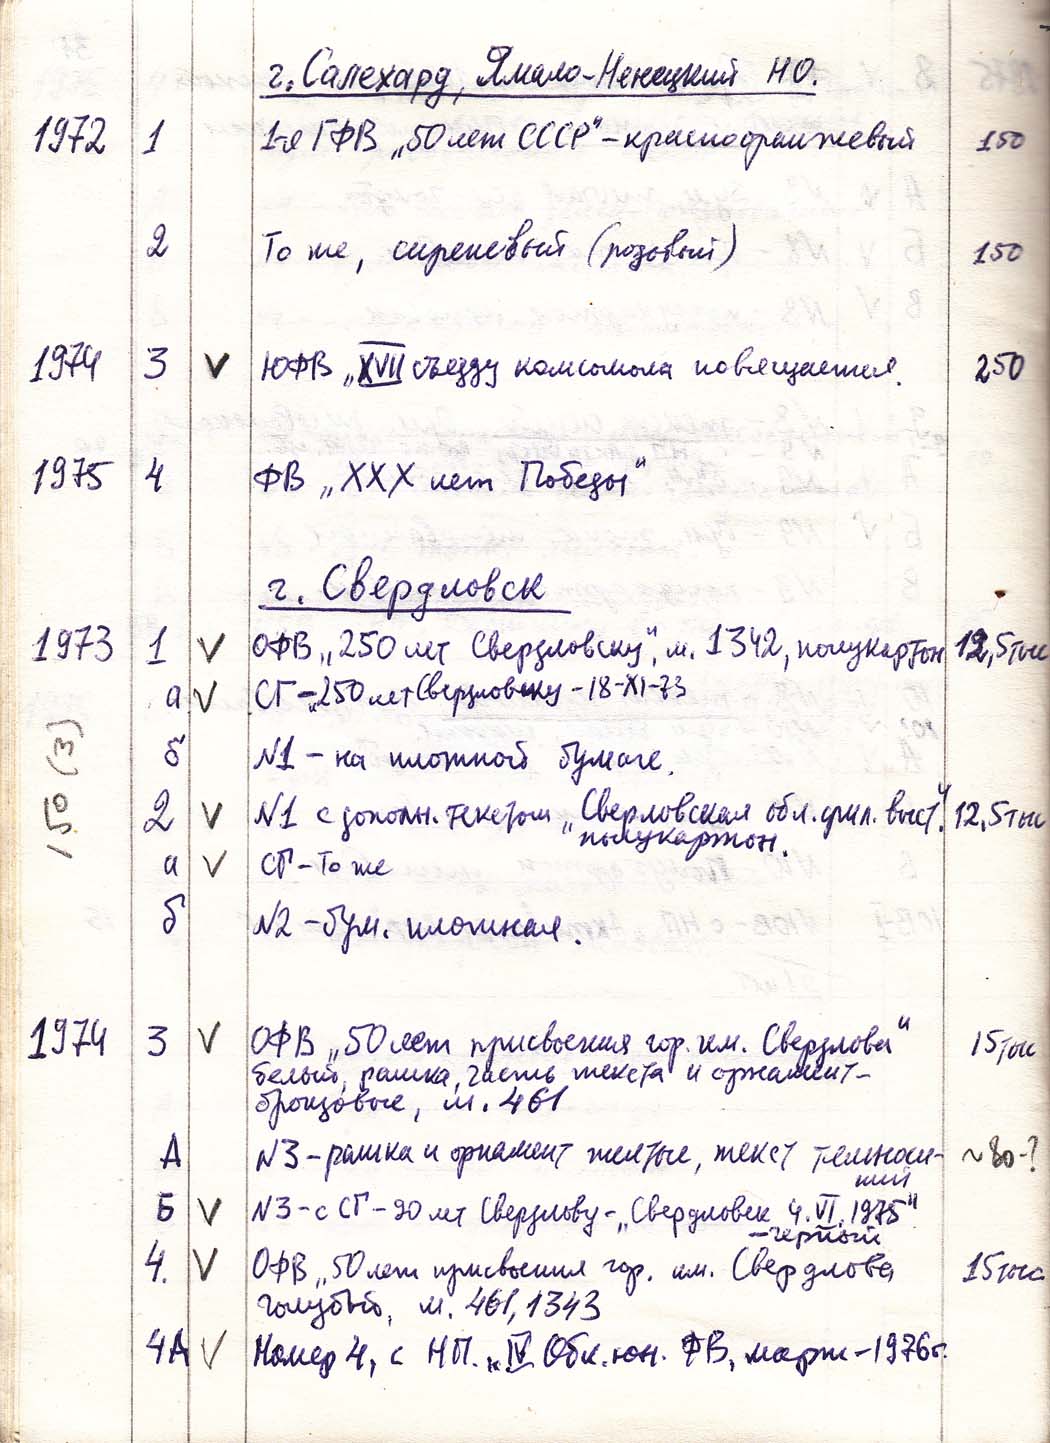 г. Салехард, Ямало-Ненецкий НО.
1972 1 1-я ГФВ „50 лет СССР" - краснооранжевый 150
2 То же, сиреневый (розовый) 150
1974 3 V ЮФВ „XVII съезду комсомола посвящается. 250
1975 4 ФВ „XXX лет Победы"
г. Свердловск
1973 1 V ОФВ „250 лет Свердловску", м. 1342, полукартон 12,5 тыс
а V СГ - „250 лет Свердловску - 18-XI-73
б N1 - на плотной бумаге.
150 (3)
2 V N1 с дополн. текстом „Сверловская обл. фил. выст." 12,5 тыс
полукартон.
а V СГ - То же
б N2 - бум. плотная.
1974 3 V ОФВ „50 лет присвоения гор. им. Свердлова" 15 тыс
белый, рамка, часть текста и орнамент -
бронзовые, м. 461
А N3 - рамка и орнамент желтые, текст темноси- ~80-?
ний
Б V N3 - с СГ - 90 лет Свердлову - „Свердловск 4.VI.1975"
- черный
4. V ОФВ „50 лет присвоения гор. им. Свердлова 15 тыс
голубой, м. 461, 1343
4А V Номер 4, с НП. „IV Обл. юн. ФВ, март - 1976 г.